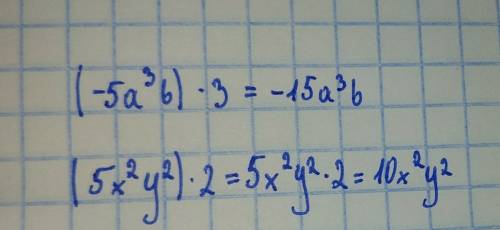 (-5a³b) · 3 = -15a³b
(5x²y²) · 2 = 5x²y² · 2 = 10x²y²